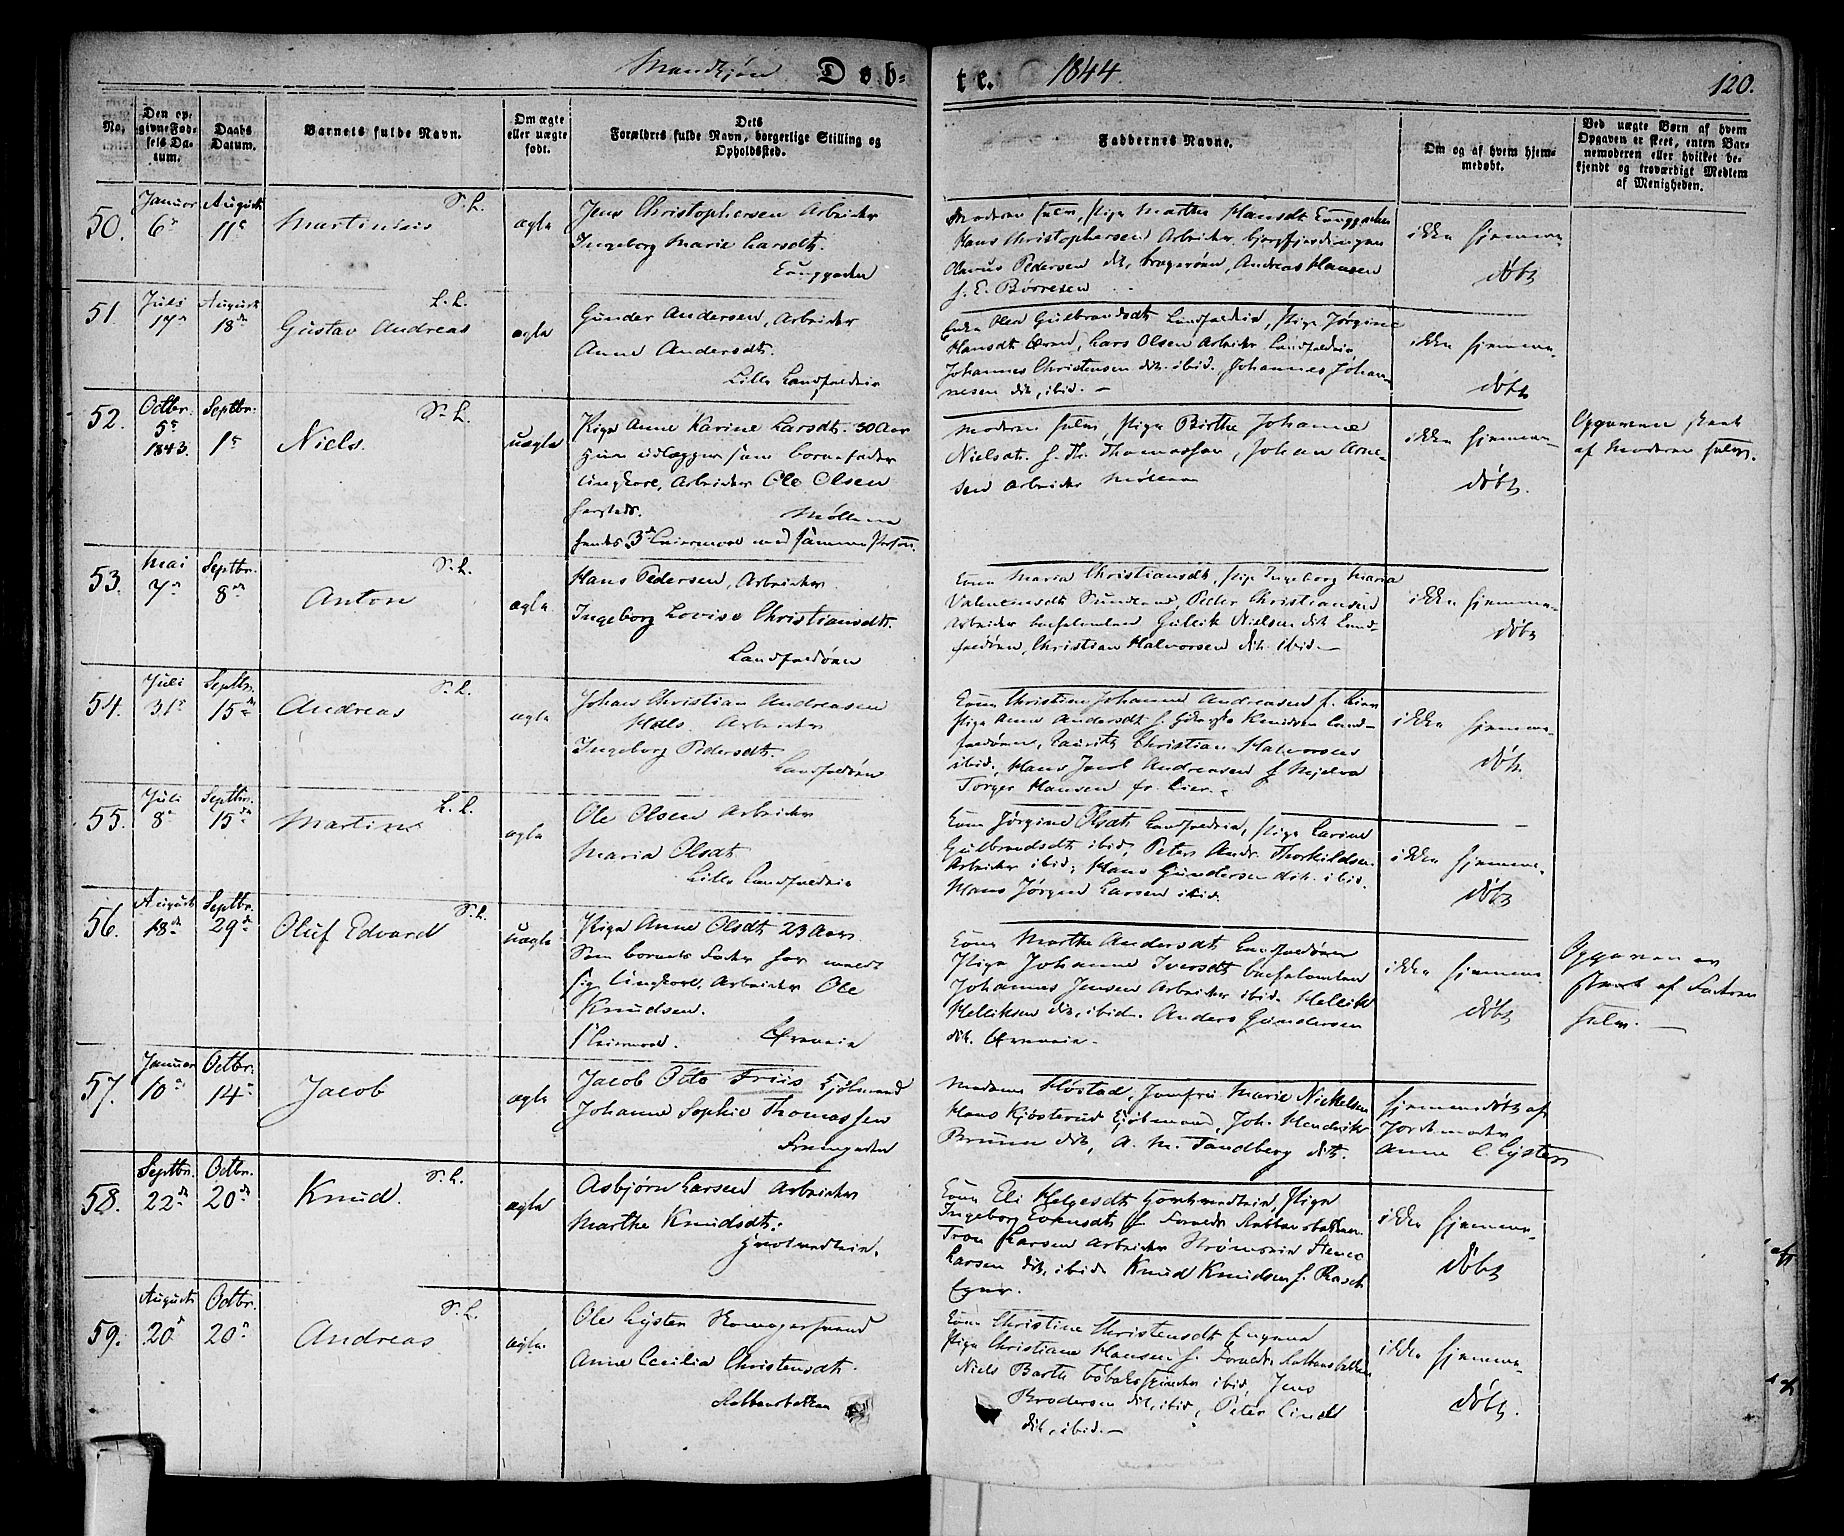 Mandkjøn Døb-
te. 1844. 120.
No.
Den op-
givne Fød-
sels Da-
tum.
Daabs
Datum.
Barnets fulde Navn.
Om ægte
eller uægte
født.
Dets
Forældres fulde Navn, borgerlige Stilling og
Opholdssted.
Faddernes Navne.
Om og af hvem hjem-
medøbt.
Ved uægte Børn af hvem
Opgaven er skeet, enten Bar-
nemoderen eller hvilket be-
kjendt og troværdigt Medlem
af Menigheden.
50.
Januar
6
August
11
S. L.
Martinius
ægte
Jens Christophersen Arbeider
Ingeborg Marie Larsdt.
Moderen selv, Pige Marthe Hansdt
Hans Christophersen Arbeider
Olavus Pedersen dito, Andreas Hansen
f. E. Børresen
ikke hjemme-
døbt
51
Juli
17
August
18
L. L.
Gustav Andreas
ægte
Gunder Andersen, Arbeider
Anne Andersdt.
Lille Landfaldøie
Olea Gulbrandsdt Landfaldøie, Pige Jørgine
Hansdt Lars Olsen Arbeider Landfaldøie,
Johannes Christensen dito ibid. Johannes Johan-
nesen dito, ibid. -
ikke hjemme-
døbt
52.
Octbr.
5
1843.
Septbr.
1
S. L.
Niels.
uægte
Pige Anne Karine Larsdt. 30 Aar
som barnefader
Ungkarl, Arbeider Ole Olsen
Møllerne
hendes 3 Leiermaal med samme Person.
Moderen selv, Pige Birthe Johanne
Nielsdt. f. Th. Thomassen, Johan Arne-
sen Arbeider Møllerne
ikke hjemme-
døbt.
Opgaven skeet
af Moderen selv.
53.
Mai
7
Septbr.
8
S. L.
Anton
ægte
Hans Pedersen, Arbeider
Ingeborg Lovise Christiansdt.
Landfaldøen
Kone Maria Christiansdt, Pige Ingeborg Maria
Valentinsdt Sundland, Peder Christiansen
Arbeider Gullik Nielsen dito Land-
faldøen, Christian Halvorsen dito. ibid. -
ikke hjemme-
døbt
54.
Juli
31
Septbr.
15
S. L.
Andreas
ægte
Johan Christian Andreasen
Arbeider
Ingeborg Pedersdt.
Landfaldøen
Kone Christine Johanne Andreasen f. Lier
Pige Anne Andersdt f. Knudsen Land-
faldøen, Laurits Christian Halvorsen
ibid., Hans Jacob Andreasen f.
Torger Hansen fr Lier.
ikke hjemme-
døbt.
55.
Juli
8
Septbr.
15
L. L.
Martin
ægte
Ole Olsen Arbeider
Maria Olsdt
Lille Landfaldøie
Kone Jørgine Olsdt Landfaldøie, Pige Carine
Gulbrandsdt ibid, Peter Andr. Thorkildsen
Arbeider ibid; Hans Gundersen dito. ibid.
Hans Jørgen Larsen ibid.
ikke hjemme-
døbt
56.
August
18
Septbr.
29
S. L.
Oluf Edvard
uægte
Pige Anne Olsdt 23 Aar.
Som barnets Fader har meldt
sig Ungkarl, Arbeider Ole
Knudsen.
1 Leiermaal.
Kone Marthe Andersdt Landfaldøen
Pige Johanne Iversdt
Johannes Jensen Arbeider ibid. Hellik
Helliksen dito, ibid. Anders Gundersen
dito.
ikke hjemme-
døbt
Opgaven er
skeet af Faderen
selv. -
57.
Januar
10
Octbr.
14
Jacob
ægte
Jacob Otto Friis Kjøbmand
Johanne Sophie Thomassen
Madame Høstad, Jomfru Marie Nickelsen
Hans Kjøsterud Kjøbmand, Joh. Hendrik
Bruun dito, A. M. Tandberg dito.
hjemmedøbt af
Jordmoder
Anne C Lysten
58.
Septbr.
22
Octbr.
20
S. L.
Knud.
ægte
Asbjørn Larsen Arbeider
Marthe Knudsdt.
Kone Eli Helgesdt Pige
Ingeborg Evensdt
Tron Larsen Arbeider Strømsøie
Larsen dito, ibid. Knud Knudsen f.
ikke hjemme-
døbt
59.
August
20
Octbr.
20
S. L.
Andreas
ægte.
Ole Lysten
Anne Cecilia Christensdt.
Kone Christine Christensdt
Pige Christiane Hansen f.
Niels Barth Tobaksspinder ibid, Jens
Brodersen dito, ibid, Peter Lindt
dito, ibid. -
ikke hjemme-
døbt.